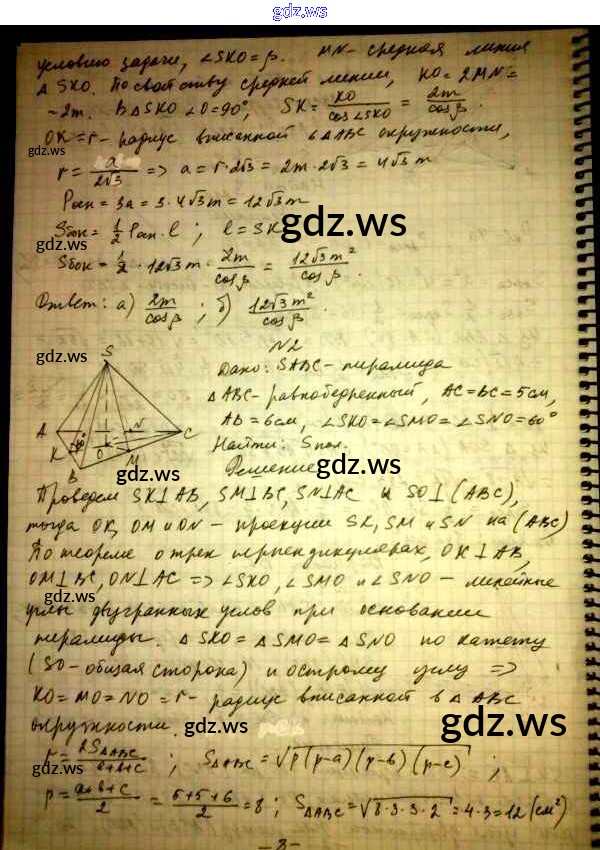 gdz.ws
условию задачи, ∠SKO=β. MN- средняя линия
△SKO. По свойству средней линии, KO=2MN=
=2m. В △SKO ∠O=90°, SK = KO/cos∠SKO = 2m/cosβ.
OK=r- радиус вписанной в △ABC окружности,
gdz.ws gdz.ws
r = a/2√3 => a = r·2√3 = 2m·2√3 = 4√3 m
Pосн = 3a = 3·4√3 m = 12√3 m
gdz.ws
Sбок = 1/2 Pосн·l; l = SK
gdz.ws gdz.ws
Sбок = 1/2 · 12√3 m · 2m/cosβ = 12√3 m²/cosβ.
Ответ: а) 2m/cosβ; б) 12√3 m²/cosβ.
N2
gdz.ws
S
Дано: SABC- пирамида
△ABC- равнобедренный, AC=BC=5см,
A N C
AB=6см, ∠SKO=∠SMO=∠SNO=60°
K 60° O M
Найти: Sпол.
B
gdz.ws gdz.ws
Решение
Проведем SK⊥AB, SM⊥BC, SN⊥AC и SO⊥(ABC),
тогда OK, OM и ON - проекции SK, SM и SN на (ABC)
По теореме о трех перпендикулярах, OK⊥AB,
OM⊥BC, ON⊥AC => ∠SKO, ∠SMO и ∠SNO - линейные
gdz.ws gdz.ws
углы двугранных углов при основании
пирамиды. △SKO=△SMO=△SNO по катету
(SO-общая сторона) и острому углу =>
KO=MO=NO=r- радиус вписанной в △ABC
окружности.
gdz.ws gdz.ws
r = 2S△ABC/a+b+c; S△ABC = √p(p-a)(p-b)(p-c);
gdz.ws
p = a+b+c/2 = 5+5+6/2 = 8; S△ABC = √8·3·3·2 = 4·3 = 12 (см²)
-3-